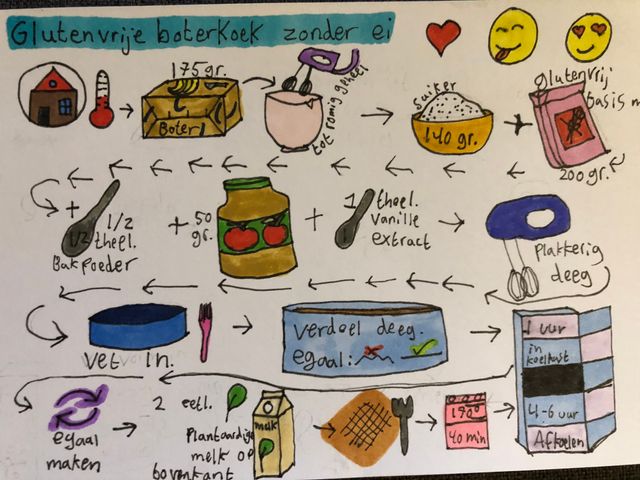 Glutenvrije boterkoek zonder ei
175 gr.
Boter
tot romig geheel
Suiker
140 gr.
Glutenvrij
basis m
200 gr.
+
+ 1/2
1/2 theel.
Bakpoeder
+ 50
gr.
+
1 theel.
Vanille
extract
1
Plakkerig
deeg
Vet in.
Verdeel deeg.
egaal:
1 uur
in
koelkast
4-6 uur
Afkoelen
egaal
maken
2 eetl.
Plantaardige
melk op
bovenkant
melk
170°
40 min